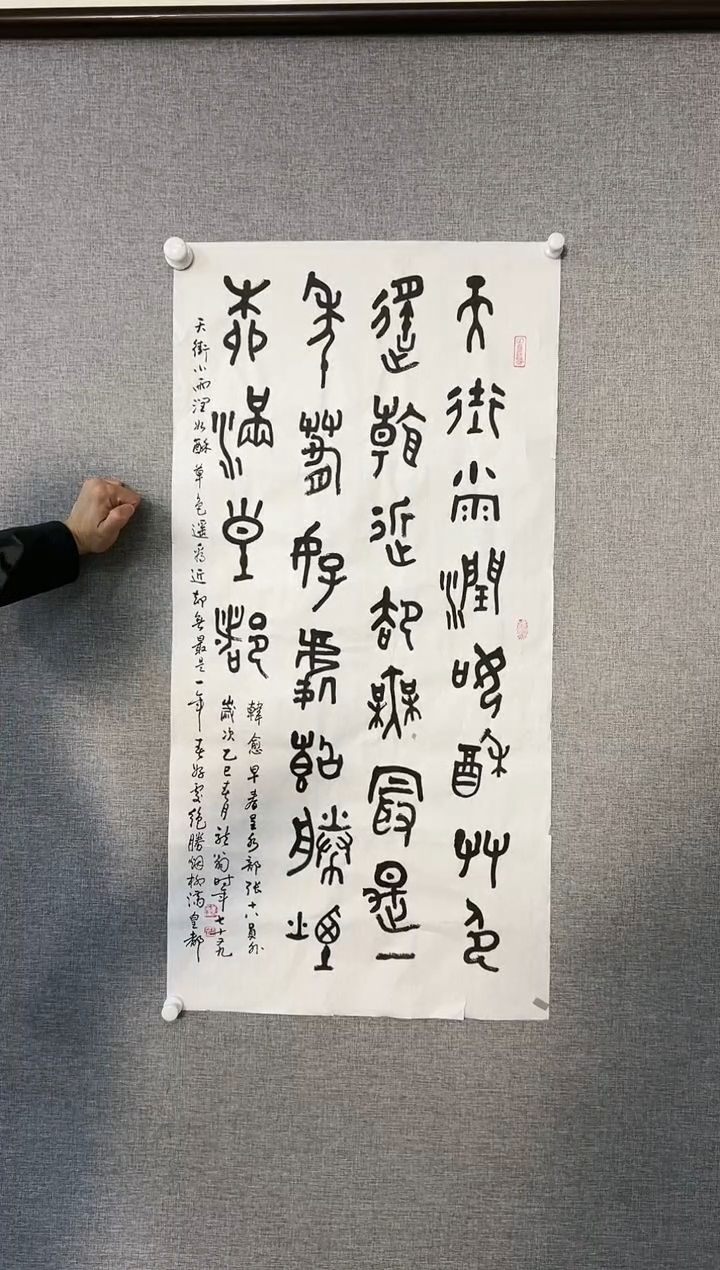 天街小雨潤如酥艸色
遥看近却無最是一
年春好處絕勝煙
柳滿皇都
韓愈早春呈水部张十八員外
歲次乙巳春月翁时年七十又九
天街小雨潤如酥草色遥看近却無最是一年春好處絕勝烟柳满皇都